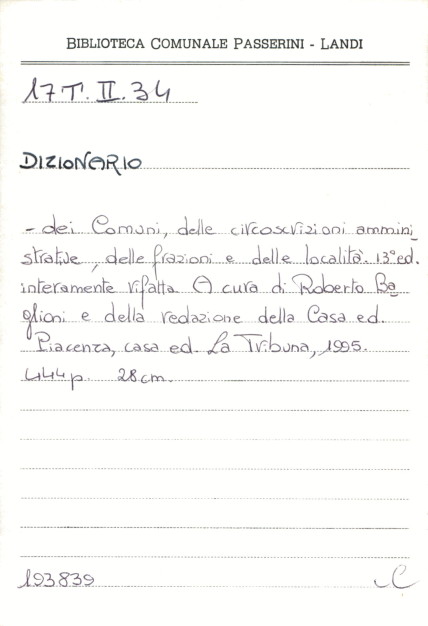 BIBLIOTECA COMUNALE PASSERINI - LANDI
17 T. II. 34
DIZIONARIO
- dei Comuni, delle circoscrizioni ammini_
strative, delle frazioni e delle località. 13ª ed.
interamente rifatta. A cura di Roberto Ba_
glioni e della redazione della Casa ed.
Piacenza, casa ed. La Tribuna, 1995.
444 p. 28 cm.
193839